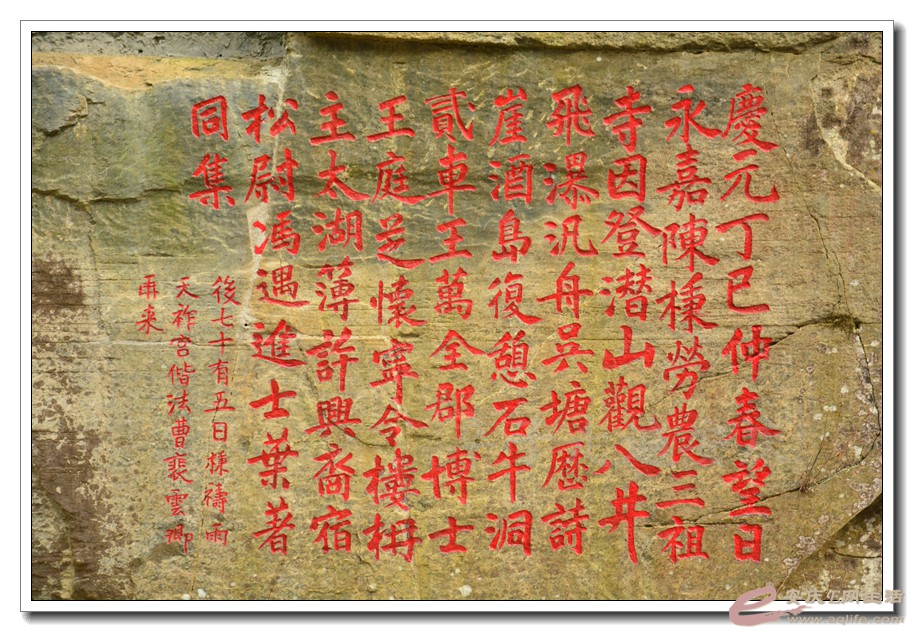 慶元丁巳仲春望日
永嘉陳楝勞農三祖
寺因登潜山觀八井
飛瀑汎舟吳塘厯詩
崖酒島復憩石牛洞
貳車王萬全郡博士
王庭芝懷寧令樓枏
主太湖薄許興裔宿
松尉馮遇進士葉著
同集
後七十有五日楝禱雨
天祚宮偕法曹裴雲卿
再来
e安庆E网生活
www.aqlife.com